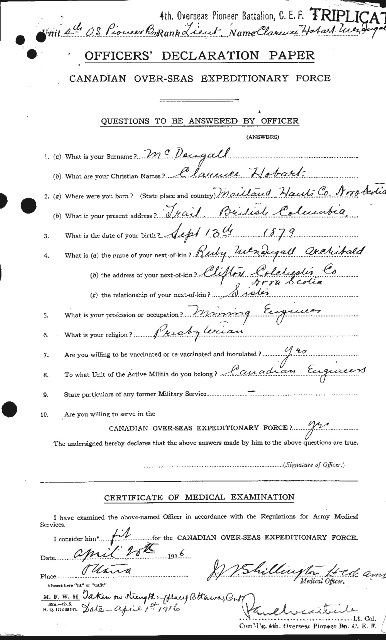 4th. Overseas Pioneer Battalion, C. E. F. TRIPLICAT
Unit 4th O.S. Pioneer Bn Rank Lieut Name Clarence Hobart McDougall
OFFICERS' DECLARATION PAPER
CANADIAN OVER-SEAS EXPEDITIONARY FORCE
QUESTIONS TO BE ANSWERED BY OFFICER
(ANSWERS)
1. (a) What is your Surname? McDougall
(b) What are your Christian Names? Clarence Hobart
2. (a) Where were you born? (State place and country) Maitland Hants Co. Nova Scotia
(b) What is your present address? Trail British Columbia
3. What is the date of your birth? Sept 13th 1879
4. What is (a) the name of your next-of-kin? Ruby McDougall Archibald
(b) the address of your next-of-kin? Clifton Colchester Co
Nova Scotia
(c) the relationship of your next-of-kin? Sister
5. What is your profession or occupation? Mining Engineer
6. What is your religion? Presbyterian
7. Are you willing to be vaccinated or re-vaccinated and inoculated? Yes
8. To what Unit of the Active Militia do you belong? Canadian Engineers
9. State particulars of any former Military Service. —
10. Are you willing to serve in the
CANADIAN OVER-SEAS EXPEDITIONARY FORCE? yes
The undersigned hereby declares that the above answers made by him to the above questions are true.
(Signature of Officer.)
CERTIFICATE OF MEDICAL EXAMINATION
I have examined the above-named Officer in accordance with the Regulations for Army Medical
Services.
I consider him* fit for the CANADIAN OVER-SEAS EXPEDITIONARY FORCE.
Date April 20th 1916
Place Ottawa
Medical Officer.
*Insert here "fit" or "unfit"
M. F. W. 51 Taken on strength, Ottawa, Ont
Date April 1st 1916
Lt. Col.
Com'd'g. 4th. Overseas Pioneer Bn. C. E. F.